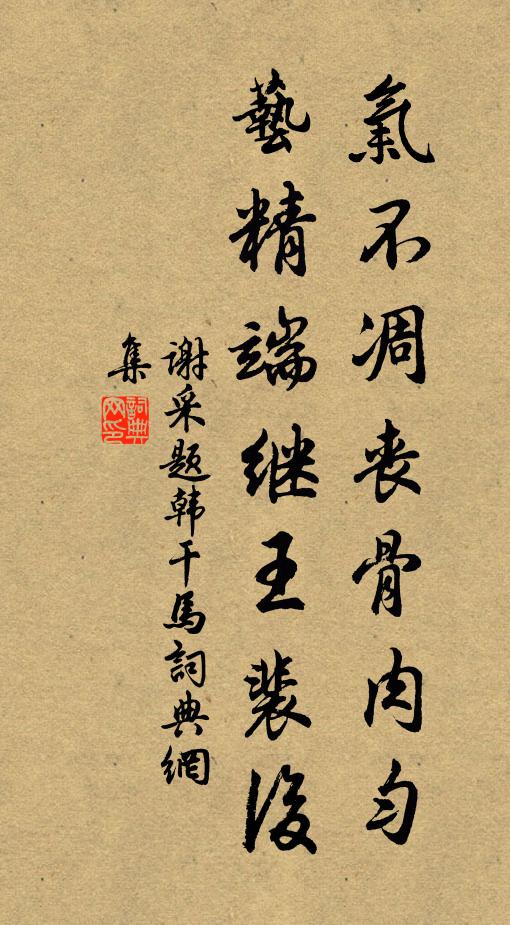 氣不凋喪骨肉勻
藝精端继王裴後
谢采题韩干馬詞典網
集
詞典網印